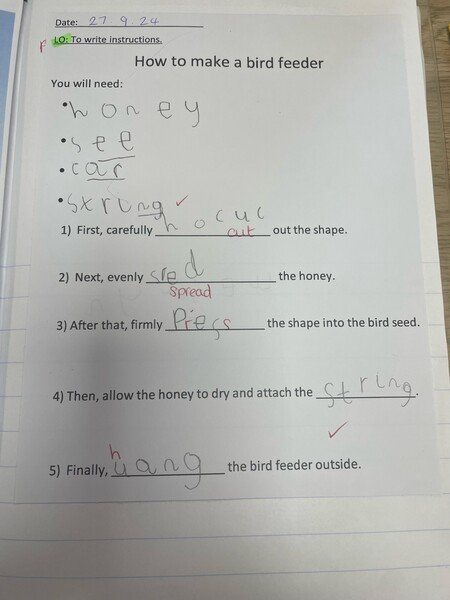 Date: 27.9.24
P LO: To write instructions.
How to make a bird feeder
You will need:
• honey
• see
• car
• string ✓
1) First, carefully hocuc out the shape.
cut
2) Next, evenly sred the honey.
spread
3) After that, firmly Press the shape into the bird seed.
4) Then, allow the honey to dry and attach the string.
✓
h
5) Finally, yang the bird feeder outside.